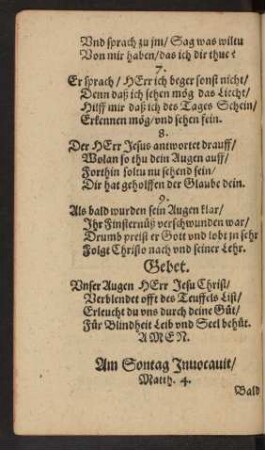 Vnd sprach zu jm/ Sag was wiltu
Von mir haben/das ich dir thue?
7.
Er sprach/ HErr ich beger sonst nicht/
Denn daß ich sehen mög das Liecht/
Hilff mir daß ich des Tages Schein/
Erkennen mög/vnd sehen fein.
8.
Der HErr Jesus antwortet drauff/
Wolan so thu dein Augen auff/
Forthin soltu nu sehend sein/
Dir hat geholffen der Glaube dein.
9.
Als bald wurden sein Augen klar/
Ihr Finsternüß verschwunden war/
Drumb preist er Gott vnd lobt jn sehr
Folgt Christo nach vnd seiner Lehr.
Gebet.
Vnser Augen HErr Jesu Christ/
Verblendet offt des Teuffels List/
Erleucht du vns durch deine Güt/
Für Blindheit Leib vnd Seel behüt.
AMEN.
Am Sontag Inuocauit/
Matth. 4.
Bald